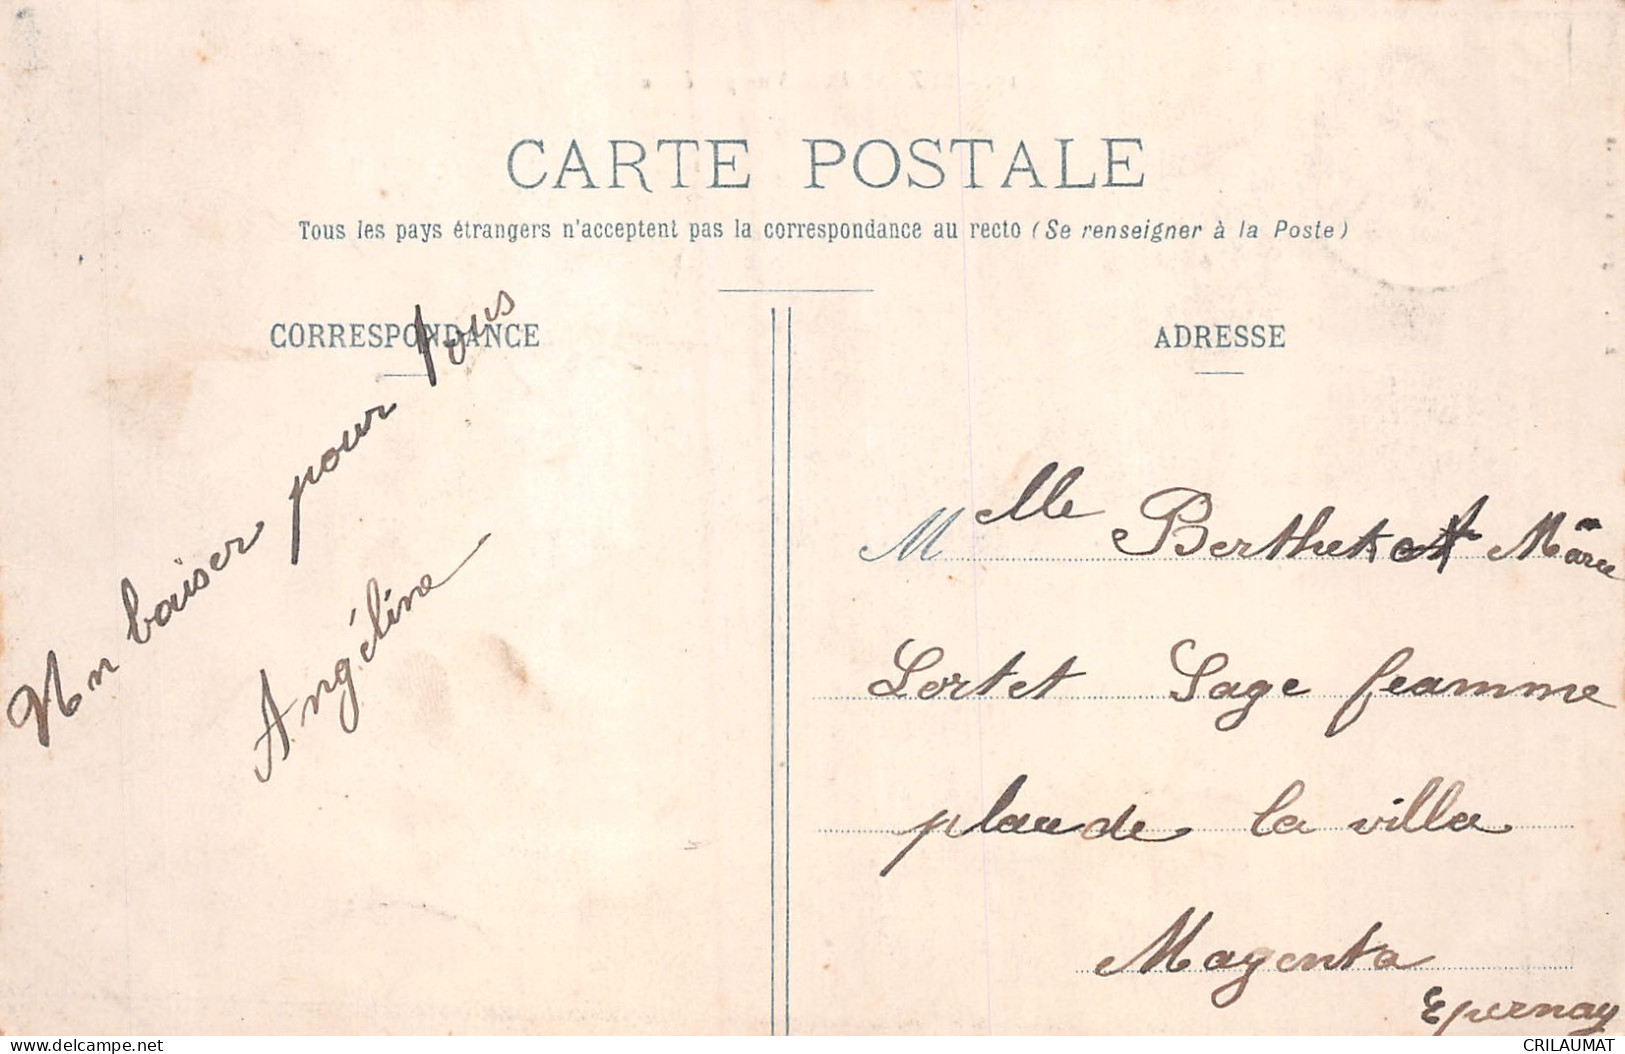 CARTE POSTALE
Tous les pays étrangers n'acceptent pas la correspondance au recto (Se renseigner à la Poste)
CORRESPONDANCE
Un baiser pour tous
Angéline
ADRESSE
Melle Berthe et
Lortet Sage feamme
place de la villa
Magenta
Epernay
delcampe.net
CRILAUMAT